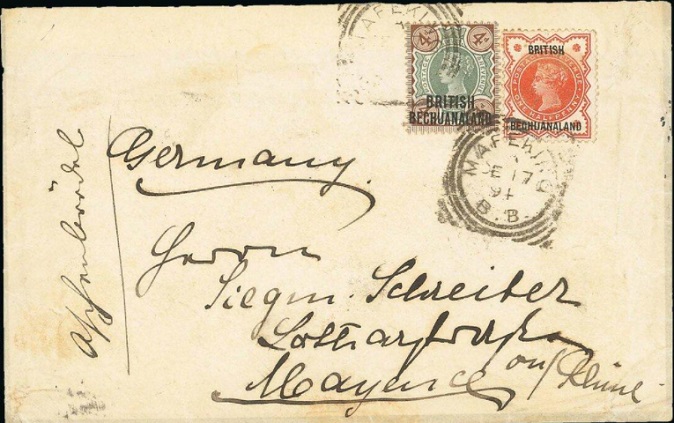 MAFEKING
4d 4d
BRITISH
BECHUANALAND
BRITISH
BECHUANALAND
MAFEKING
DE 17
94
B.B.
Germany.
Herrn
Siegm. Schreiber
Lotharstrasse
Mayence on/Rhine